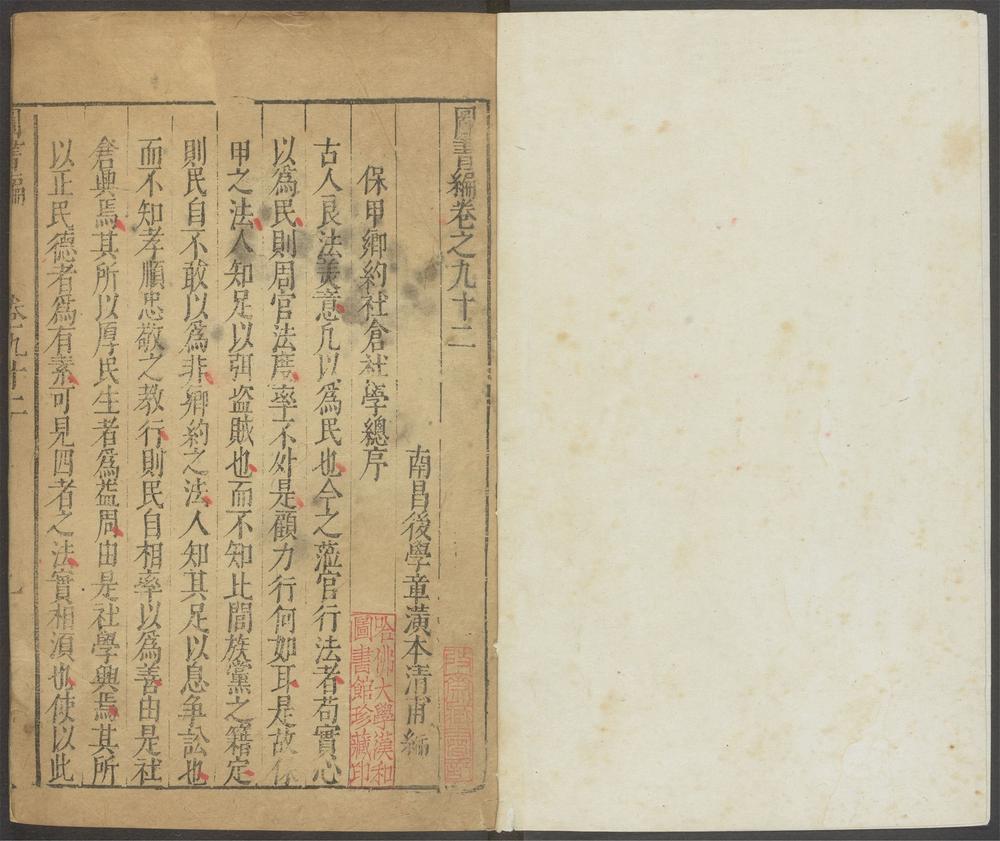 圖書編卷之九十二
南昌後學章潢本清甫編
哈佛大學漢和
圖書館珍藏印
保甲鄉約社倉社學總序
古人良法美意凡以爲民也今之蒞官行法者苟實心
以爲民則周官法度率不外是顧力行何如耳是故保
甲之法人知足以弭盜賊也而不知比閭族黨之籍定
則民自不敢以爲非鄉約之法人知其足以息争訟也
而不知孝順忠敬之教行則民自相率以爲善由是社
倉興焉其所以厚民生者爲益周由是社學興焉其所
以正民德者爲有素可見四者之法實相須也使以此
圖書編
卷九十二